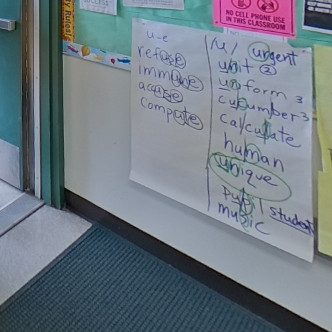 NO CELL PHONE USE
IN THIS CLASSROOM
u-e
refuse
immune
accuse
compute
/u/ urgent
unit 2
uniform 3
cucumber 3
calculate
human
unique
pupil student
music